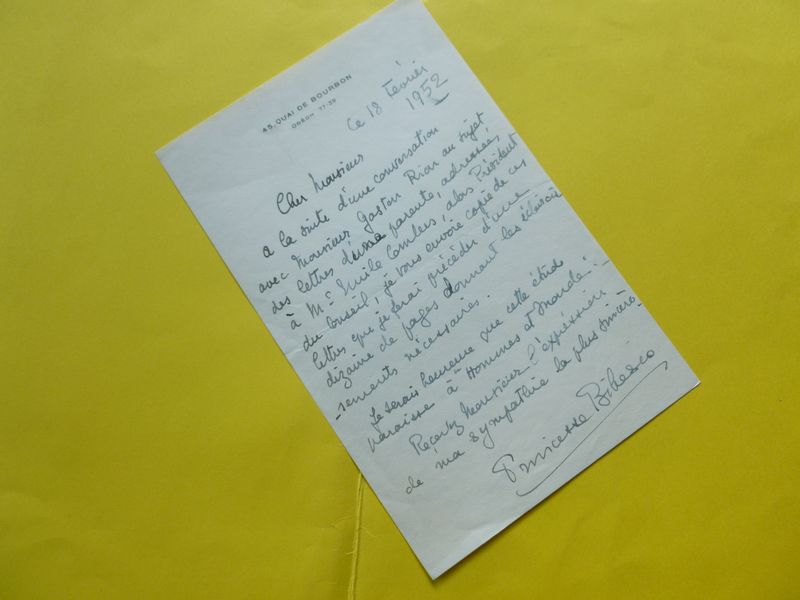 45, QUAI DE BOURBON
ODÉON 77-39
Ce 18 Février
1952
Cher Monsieur
A la suite d'une conversation
avec Monsieur Gaston Riou au sujet
des lettres d'une parente, adressées,
à Mr Emile Combes, alors Président
du Conseil, je vous envoie copie de ces
lettres que je ferai précéder d'une
dizaine de pages donnant les éclaircis
-sements nécessaires.
Je serais heureuse que cette étude
paraisse à "Hommes et Monde".
Recevez Monsieur l'expression
de ma sympathie la plus sincère
Princesse Bibesco